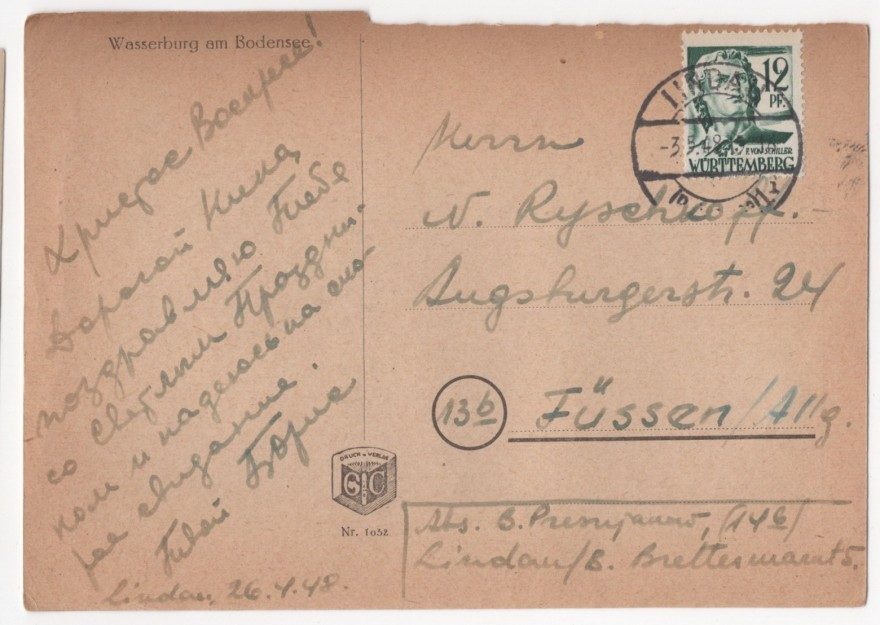 Wasserburg am Bodensee
Христос Воскрес!
Дорогой Кика,
поздравляю Тебя
со Светлым Праздни-
ком и надеюсь на ско-
рое свидание.
Твой Борис
Lindau, 26.4.48.
DRUCK u. VERLAG
Nr. 1032
12
PF.
F. VON SCHILLER
WÜRTTEMBERG
LINDA
-3.5.48
Herrn
N. Ryschkoff.
Augsburgerstr. 24
13b Füssen/Allg.
Abs. B. (14b)
Lindau/B. Brettermarkt 5.